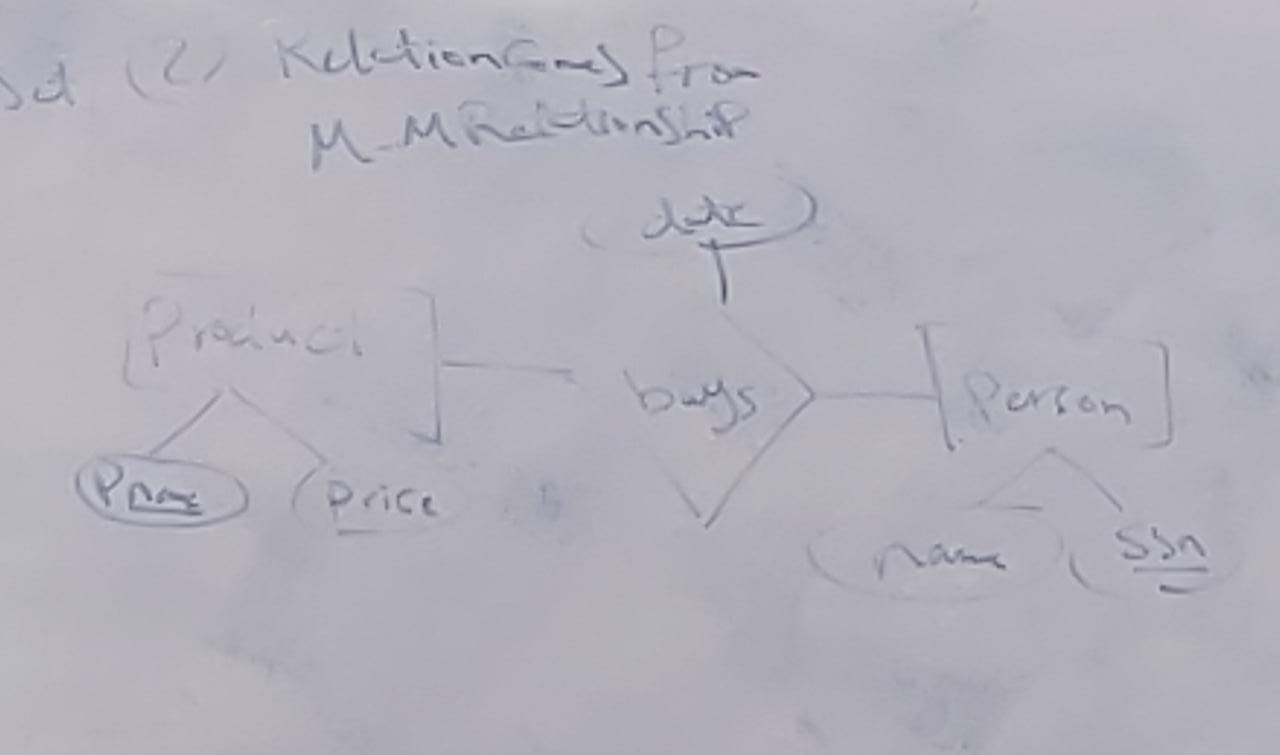 (2) Relation Comes From
M-M Relationship
date
Product
buys
Person
Pname
Price
name
SSn